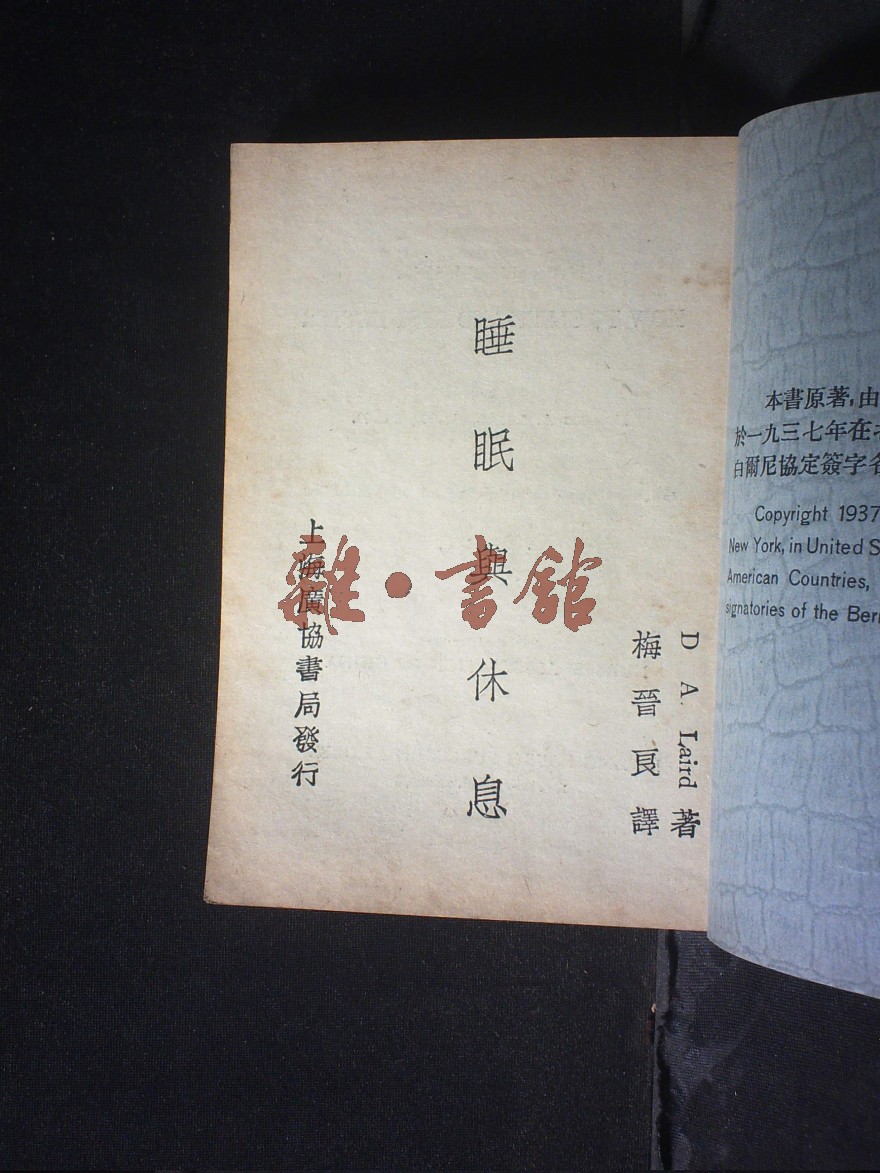 D. A. Laird 著
梅晉良譯
睡眠與休息
上海廣協書局發行
雜•書館
本書原著,由
於一九三七年在
白爾尼協定簽字
Copyright 1937
New York, in United S
American Countries,
signatories of the Ber